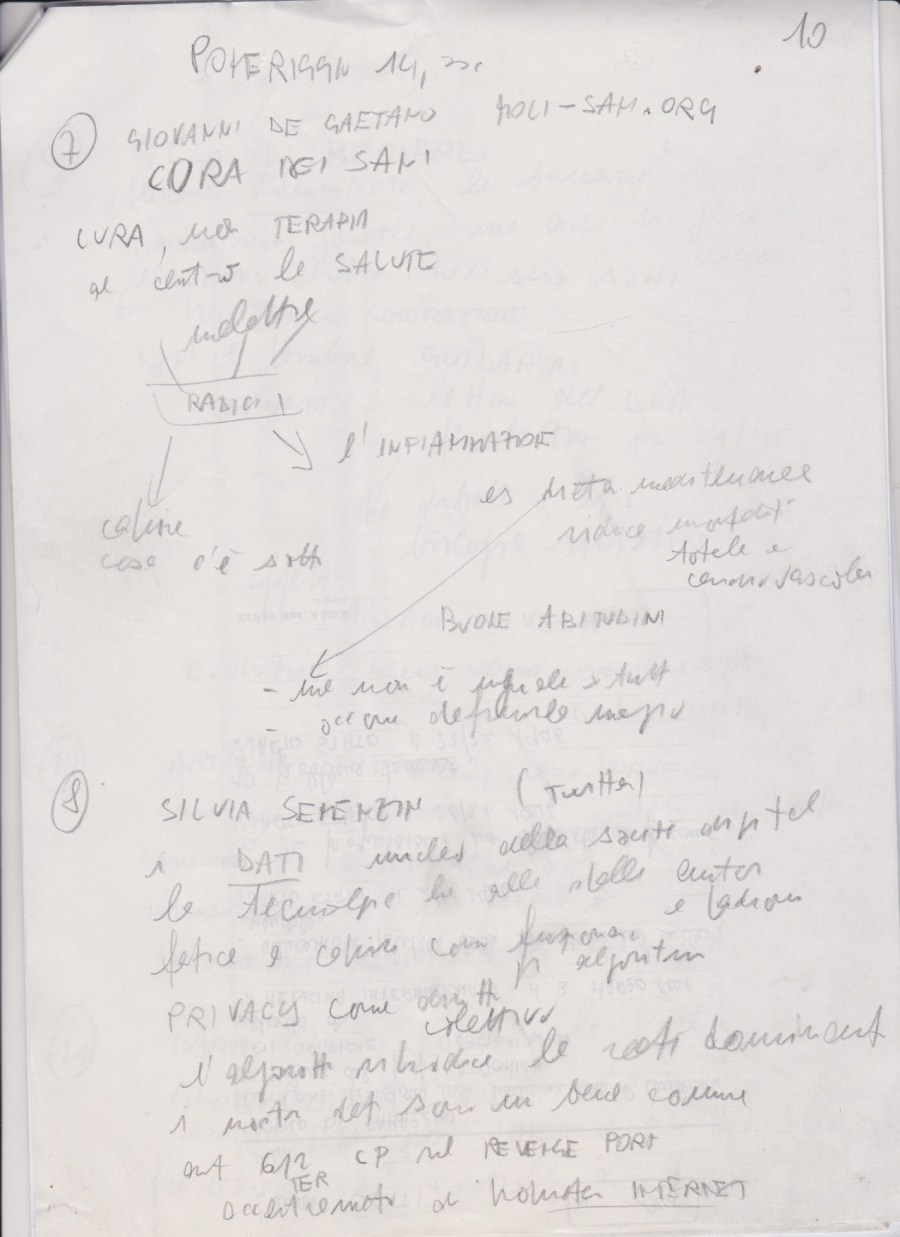 10
POMERIGGIO 14,
7 GIOVANNI DE GAETANO MOLI-SANI.ORG
CURA DEI SANI
CURA, non TERAPIA
al centro la SALUTE
malattie
RADICI
l'INFIAMMAZIONE
es dieta mediterranea
riduce mortalità
totale e
cardiovascolare
capire
cosa c'è sotto
BUONE ABITUDINI
- ma non è uguale x tutti
- occorre definirle meglio
8 SILVIA SEMENZIN (Twitter)
i DATI nucleo della società digital
la Tecnologia ha delle
fatica a capire come funzionano
gli algoritmi
PRIVACY come diritto
collettivo
l'algoritmo riproduce le dominant
i nostri dati sono un bene comune
art 612 CP sul REVENGE PORN
TER
di INTERNET